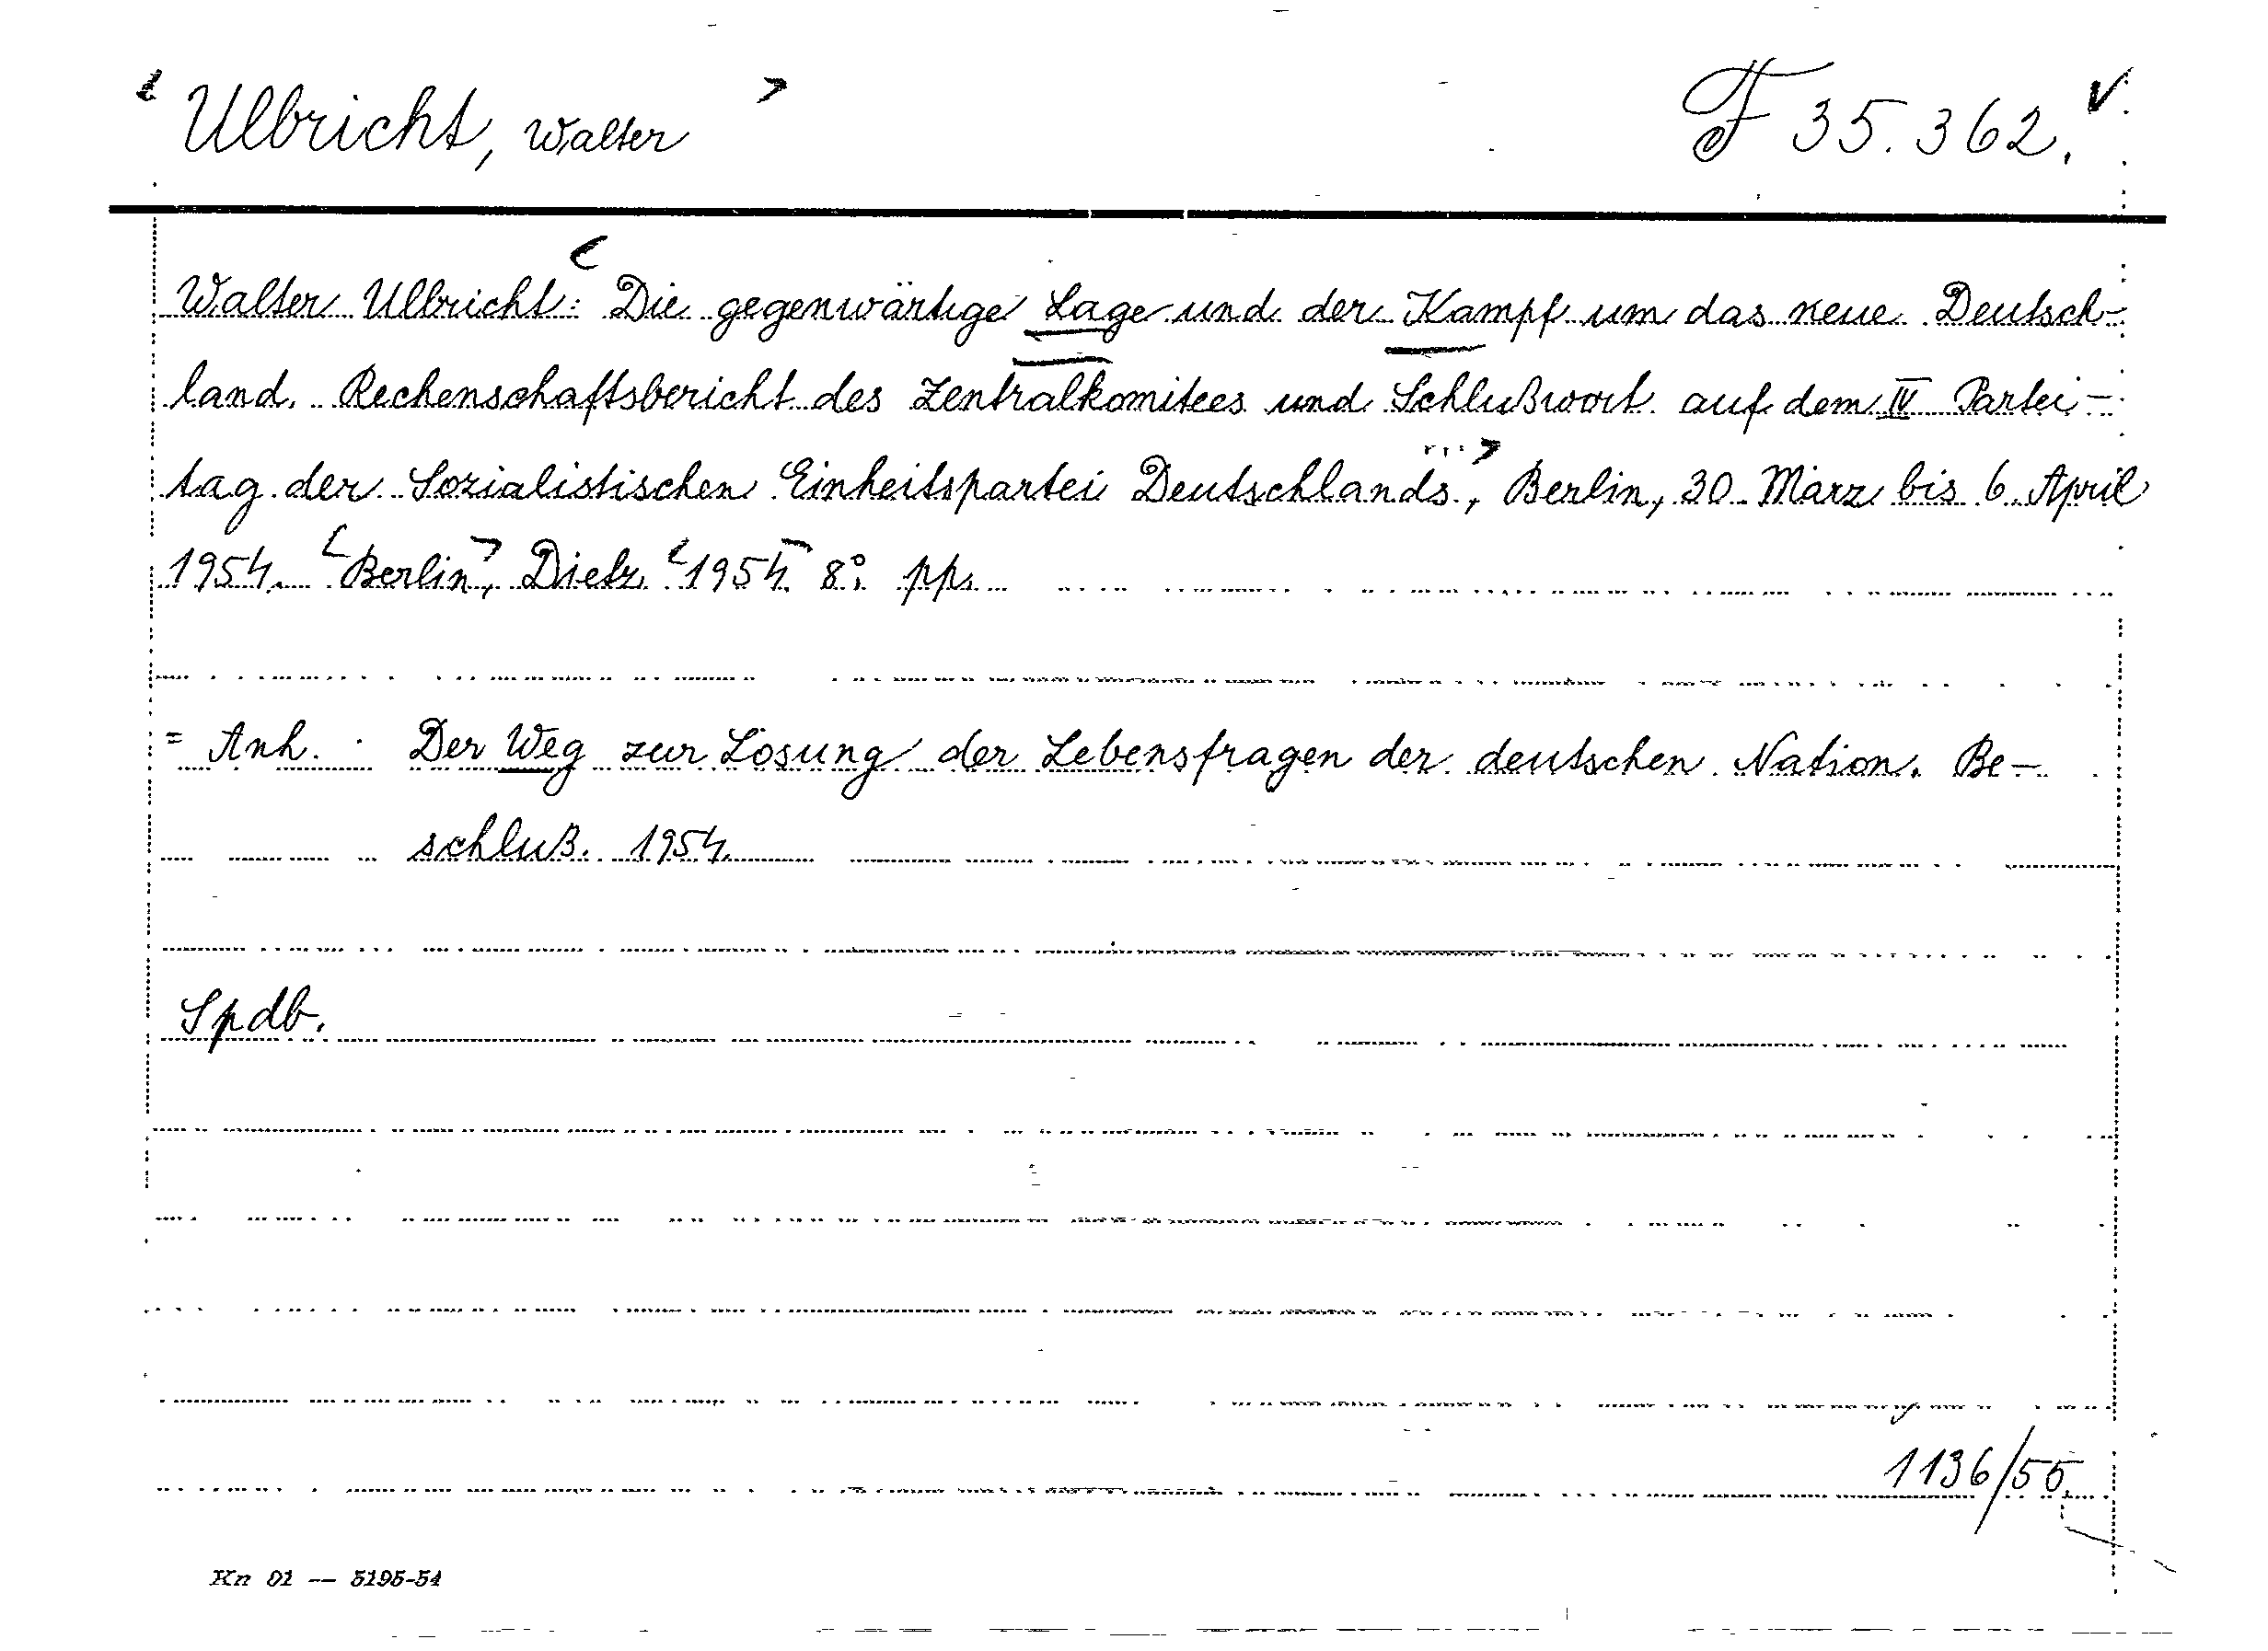 Ulbricht, Walter F 35.362.
Walter Ulbricht: Die gegenwärtige Lage und der Kampf um das neue Deutsch-
land. Rechenschaftsbericht des Zentralkomitees und Schlußwort auf dem IV Partei-
tag der Sozialistischen Einheitspartei Deutschlands, Berlin, 30. März bis 6. April
1954. Berlin, Dietz 1954. 8°. pp.
= Anh. Der Weg zur Lösung der Lebensfragen der deutschen Nation. Be-
schluß. 1954.
Spdb.
1136/55.
Kn 01 — 5195-54